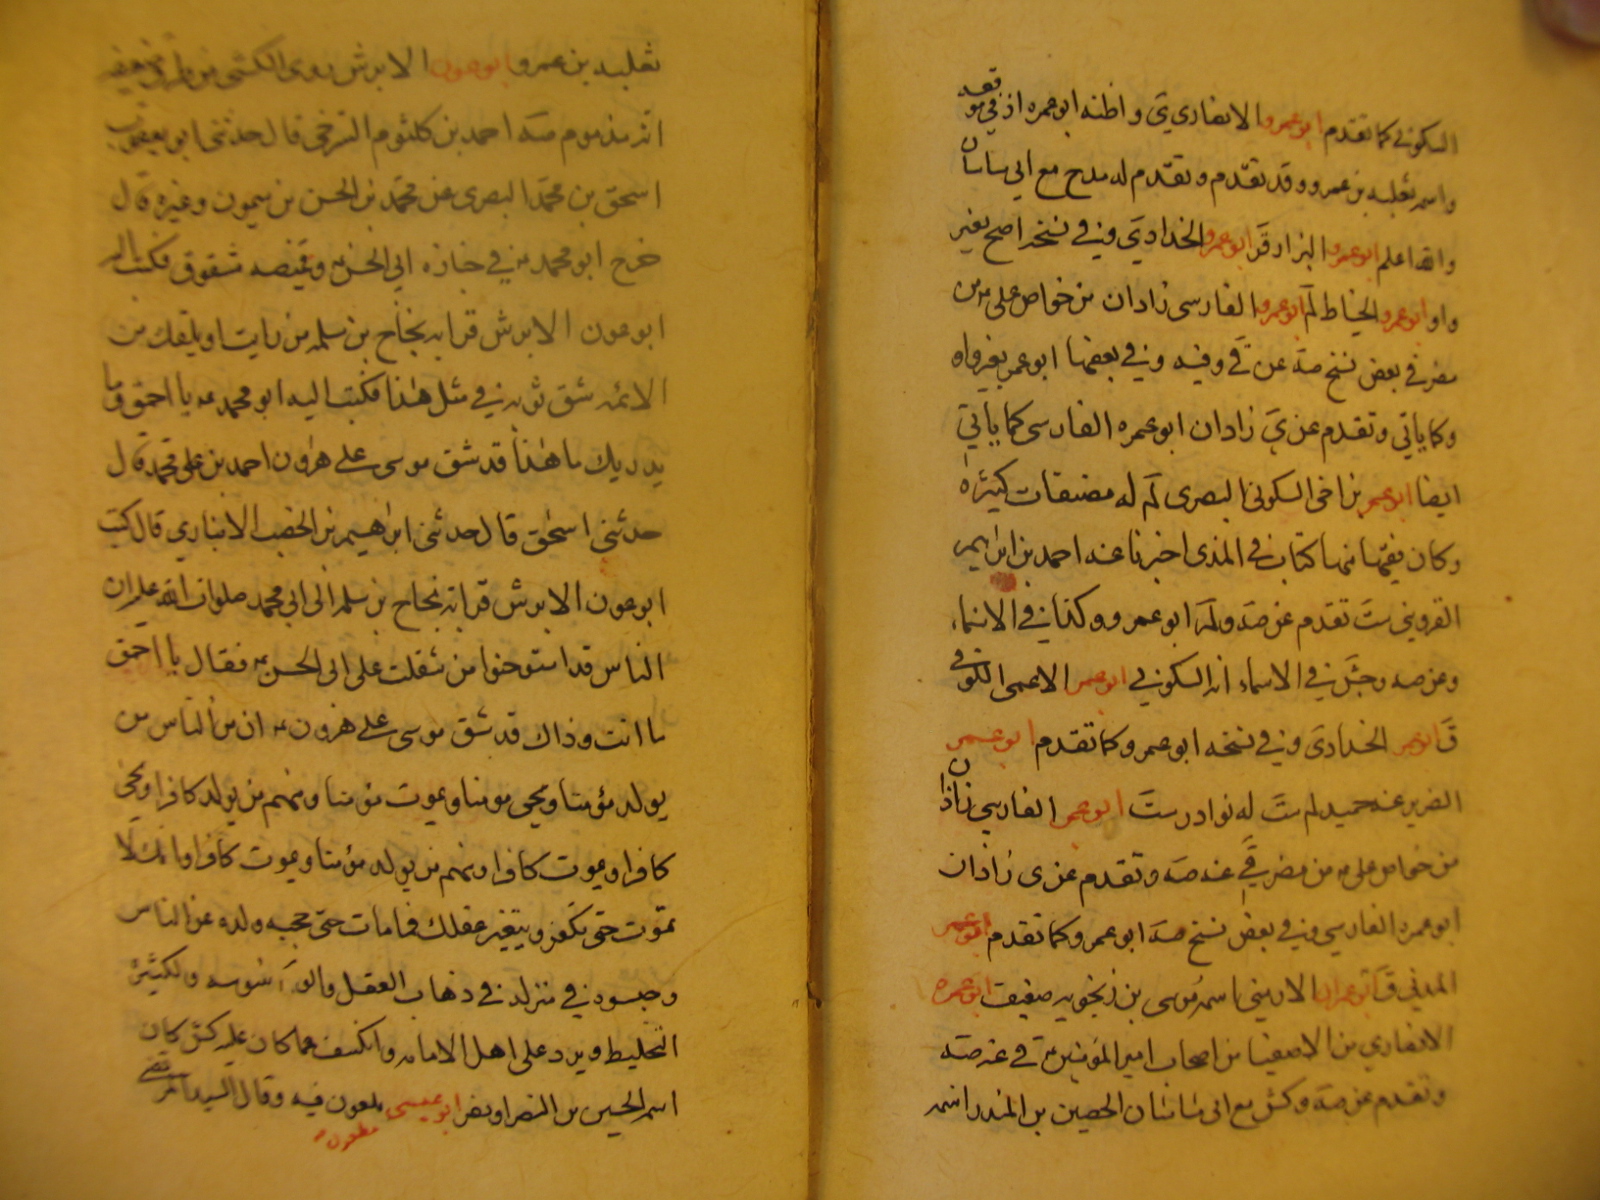 السكوني كما تقدم ابو عمرو الانصاري ي واظنه ابو عمره اذ في موقعه
واسمه ثعلبه بن عمرو وقد تقدم وتقدم له مدح مع ابي ساسان
والله اعلم ابو عمرو البزاز ق ابو عمرو الخدادي وفي نسخه اصح بغير
واو ابو عمرو الخياط لم ابو عمرو الفارسي زاذان من خواص علي من
مضر في بعض نسخ صه عن قي وفيه وفي بعضها ابو عمر بغير واو
وكما ياتي وتقدم عن ي زاذان ابو عمره الفارسي كما ياتي
ايضا ابو عمر بن اخي السكوني البصري لم له مصنفات كثيرة
وكان فقيها منها كتاب في المذي اخبرنا عنه احمد بن ابراهيم
القزويني ست تقدم عن صه ولم ابو عمرو وكذا في الاسماء
وعن صه وجش في الاسماء انه السكوني ابو عمر الاعمى الكوفي
ق ابو عمر الخدادي وفي نسخه ابو عمرو كما تقدم ابو عمر
الضرير عنه حميد لم ست له نوادر ست ابو عمر الفارسي زاذان
من خواص علي من مضر قي عنه صه وتقدم عن ي زاذان
ابو عمره الفارسي وفي بعض نسخ صه ابو عمرو كما تقدم ابو عمر
المدني ق ابو عمران الارمني اسمه موسى بن زنجويه ضعيف ابو عمره
الانصاري من الاصفيا من اصحاب امير المؤمنين قي عنه صه
وتقدم عن صه وكش مع ابي ساسان الحصين بن المنذر اسمه
ثعلبه بن عمرو ابو عون الابرش روى الكشي
انه مذموم صه احمد بن كلثوم السرخسي قال حدثني ابو يعقوب
اسحق بن محمد البصري عن محمد بن الحسن بن شمون وغيره قال
خرج ابو محمد في جنازه ابي الحسن وقميصه مشقوق فكتب اليه
ابو عون الابرش قرابه نجاح بن سلمه من رايت او بلغك من
الائمه شق ثوبه في مثل هذا فكتب اليه ابو محمد يا احمق وما
يدريك ما هذا قد شق موسى على هرون احمد بن علي محمد قال
حدثني اسحق قال حدثني ابرهيم بن الخضيب الانباري قال كتب
ابو عون الابرش قرابه نجاح بن سلمه الى ابي محمد صلوات الله عليه ان
الناس قد استوحشوا من شقك على ابي الحسن فقال يا احمق
ما انت وذاك قد شق موسى على هرون ان من الناس من
يولد مؤمنا ويحيى مؤمنا ويموت مؤمنا ومنهم من يولد كافرا ويحيى
كافرا ويموت كافرا ومنهم من يولد مؤمنا ويموت كافرا وانك لا
تموت حتى تكفر ويتغير عقلك فما مات حتى حجبه ولده عن الناس
وحبسوه في منزله في ذهاب العقل والوسوسه ولكثرة
التخليط ويرد على اهل الامامه وانكشف عما كان عليه كش كان
اسمه الحسن بن النضر او نضر ابو عيسى ملعون فيه وقال السيد المرتضى
مطعون